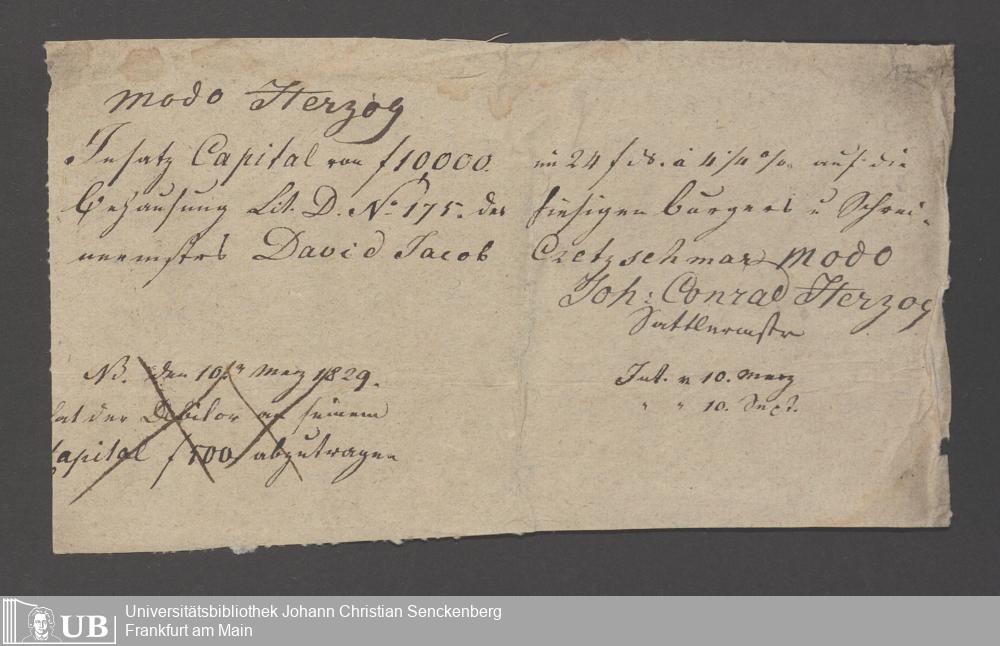 modo Herzog
Insatz Capital von f 10,000. im 24 f ds. à 4 1/4 % auf die
Behausung Lit. D. No 175. des hiesigen burgers u Schrei-
nermstrs David Jacob Cretzschmar modo
Joh: Conrad Herzog
Sattlermstr
NB. den 10ten Merz 1829.
hat der Debitor an seinem
Capital f 500 abzutragen
Int. v 10. Merz
" " 10. Sept.
UB Universitätsbibliothek Johann Christian Senckenberg
Frankfurt am Main